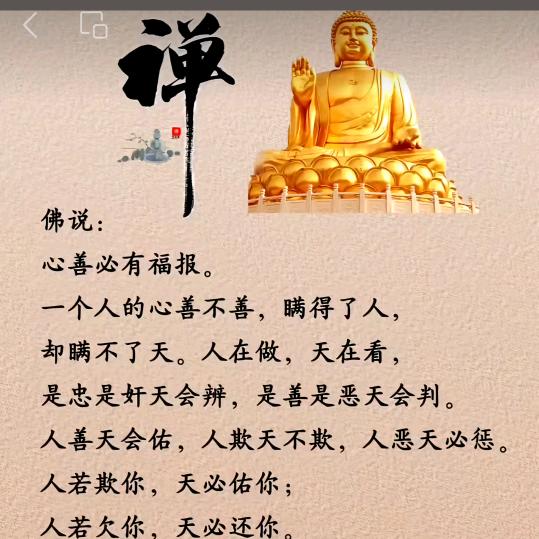 禅
佛说：
心善必有福报。
一个人的心善不善，瞒得了人，
却瞒不了天。人在做，天在看，
是忠是奸天会辨，是善是恶天会判。
人善天会佑，人欺天不欺，人恶天必惩。
人若欺你，天必佑你；
人若欠你，天必还你。